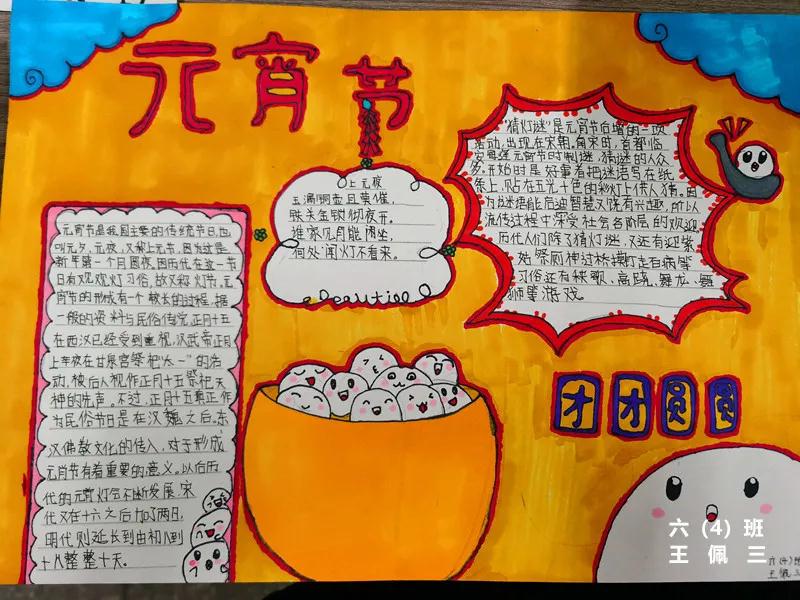 元宵节
元宵节是我国主要的传统节日,也
叫元夕、元夜,又称上元节,因为这是
新年第一个月圆夜。因历代在这一节
日有观灯习俗,故又称灯节。元
宵节的形成有一个较长的过程,据
一般的资料与民俗传说,正月十五
在西汉已经受到重视,汉武帝正月
上辛夜在甘泉宫祭祀“太一”的活
动,被后人视作正月十五祭祀天
神的先声。不过,正月十五真正作
为民俗节日是在汉魏之后。东
汉佛教文化的传入,对于形成
元宵节有着重要的意义。以后历
代的元宵灯会不断发展,宋
代又在十六之后加了两日,
明代则延长到由初八到
十八整整十天。
上元夜
玉漏铜壶且莫催,
铁关金锁彻夜开。
谁家见月能闲坐,
何处闻灯不看来。
Beautiful
“猜灯谜”是元宵节后增的一项
活动,出现在宋朝。南宋时,首都临
安每逢元宵节时制谜,猜谜的人众
多。开始时是好事者把谜语写在纸
条上,贴在五光十色的彩灯上供人猜。因
为谜语能启迪智慧又饶有兴趣,所以
流传过程中深受社会各阶层的欢迎。
历代人们除了猜灯谜,又还有迎紫
姑祭厕神过桥摸灯走百病等
习俗还有秧歌、高跷、舞龙、舞
狮等游戏。
团团圆圆
六(4)班
王佩三
六(4)班